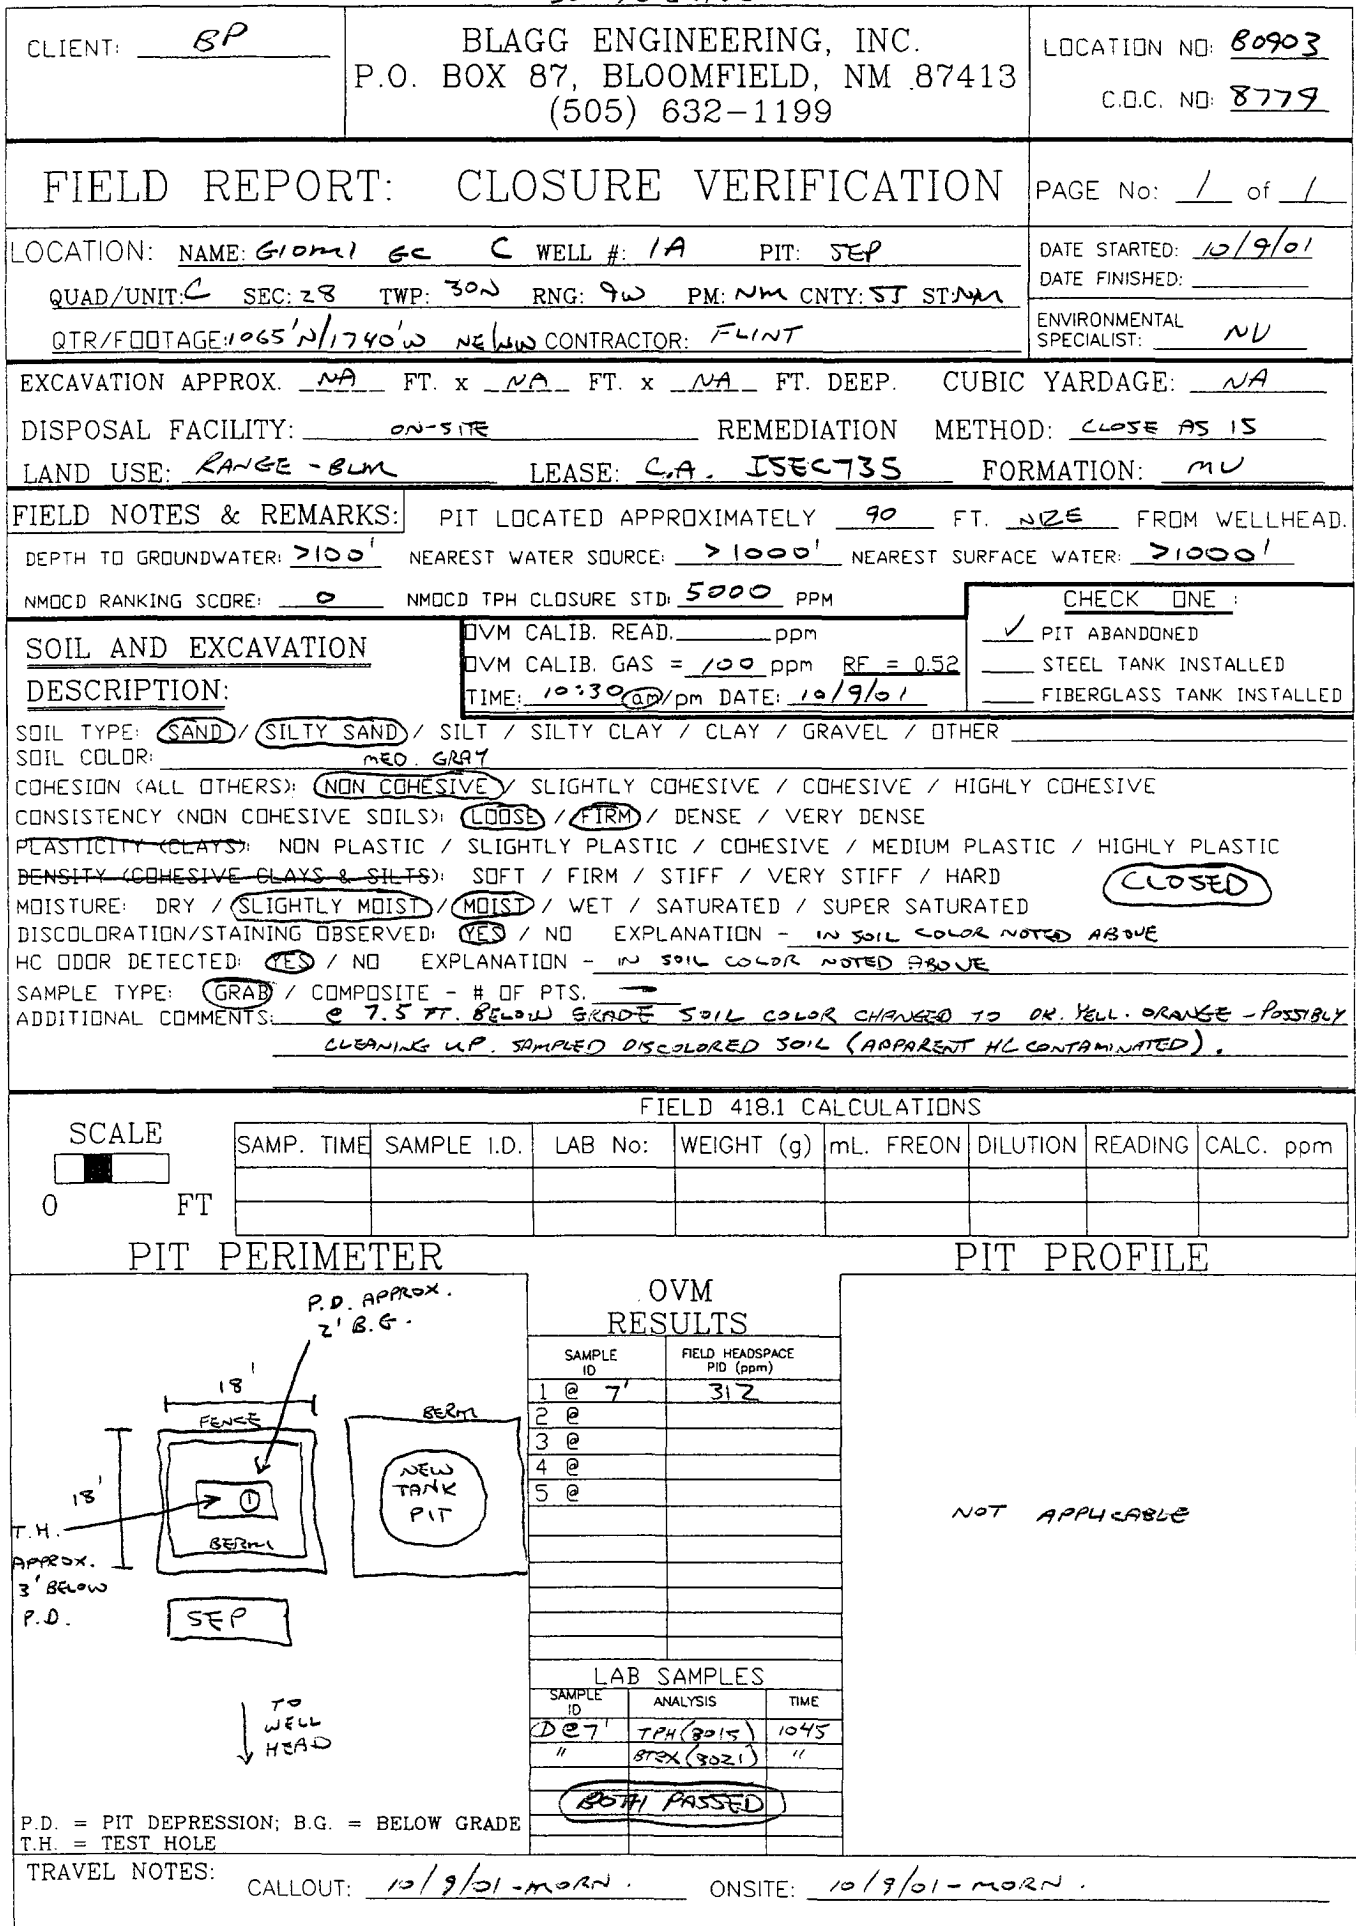 CLIENT: BP
BLAGG ENGINEERING, INC.
P.O. BOX 87, BLOOMFIELD, NM 87413
(505) 632-1199
LOCATION NO: B0903
C.O.C. NO: 8779
FIELD REPORT: CLOSURE VERIFICATION
PAGE No: 1 of 1
LOCATION: NAME: GIOMI GC C WELL #: 1A PIT: SEP
QUAD/UNIT: C SEC: 28 TWP: 30N RNG: 9W PM: NM CNTY: SJ ST: NM
QTR/FOOTAGE: 1065'N/1740'W NE/NW CONTRACTOR: FLINT
DATE STARTED: 10/9/01
DATE FINISHED:
ENVIRONMENTAL
SPECIALIST: NV
EXCAVATION APPROX. NA FT. x NA FT. x NA FT. DEEP. CUBIC YARDAGE: NA
DISPOSAL FACILITY: ON-SITE REMEDIATION METHOD: CLOSE AS IS
LAND USE: RANGE - BLM LEASE: C.A. ISEC735 FORMATION: MV
FIELD NOTES & REMARKS: PIT LOCATED APPROXIMATELY 90 FT. FROM WELLHEAD.
DEPTH TO GROUNDWATER: >100' NEAREST WATER SOURCE: >1000' NEAREST SURFACE WATER: >1000'
NMOCD RANKING SCORE: 0 NMOCD TPH CLOSURE STD: 5000 PPM
CHECK ONE :
✓ PIT ABANDONED
STEEL TANK INSTALLED
FIBERGLASS TANK INSTALLED
SOIL AND EXCAVATION
DESCRIPTION:
OVM CALIB. READ. ppm
OVM CALIB. GAS = 100 ppm RF = 0.52
TIME: 10:30 am/pm DATE: 10/9/01
SOIL TYPE: SAND / SILTY SAND / SILT / SILTY CLAY / CLAY / GRAVEL / OTHER
SOIL COLOR: MED. GRAY
COHESION (ALL OTHERS): NON COHESIVE / SLIGHTLY COHESIVE / COHESIVE / HIGHLY COHESIVE
CONSISTENCY (NON COHESIVE SOILS): LOOSE / FIRM / DENSE / VERY DENSE
PLASTICITY (CLAYS): NON PLASTIC / SLIGHTLY PLASTIC / COHESIVE / MEDIUM PLASTIC / HIGHLY PLASTIC
DENSITY (COHESIVE CLAYS & SILTS): SOFT / FIRM / STIFF / VERY STIFF / HARD
CLOSED
MOISTURE: DRY / SLIGHTLY MOIST / MOIST / WET / SATURATED / SUPER SATURATED
DISCOLORATION/STAINING OBSERVED: YES / NO EXPLANATION - IN SOIL COLOR NOTED ABOVE
HC ODOR DETECTED: YES / NO EXPLANATION - IN SOIL COLOR NOTED ABOVE
SAMPLE TYPE: GRAB / COMPOSITE - # OF PTS. —
ADDITIONAL COMMENTS: @ 7.5 FT. BELOW GRADE SOIL COLOR CHANGED TO DK. YELL. ORANGE - POSSIBLY
CLEANING UP. SAMPLED DISCOLORED SOIL (APPARENT HC CONTAMINATED).
FIELD 418.1 CALCULATIONS
SCALE
0 FT
SAMP. TIME SAMPLE I.D. LAB No: WEIGHT (g) mL. FREON DILUTION READING CALC. ppm
PIT PERIMETER
PIT PROFILE
P.D. APPROX.
2' B.G.
18'
FENCE
18'
1
BERM
T.H.
APPROX.
3' BELOW
P.D.
SEP
BERM
NEW
TANK
PIT
TO
WELL
HEAD
P.D. = PIT DEPRESSION; B.G. = BELOW GRADE
T.H. = TEST HOLE
OVM
RESULTS
SAMPLE ID FIELD HEADSPACE PID (ppm)
1 @ 7' 312
2 @
3 @
4 @
5 @
LAB SAMPLES
SAMPLE ID ANALYSIS TIME
① @ 7' TPH (8015) 1045
" BTEX (8021) "
BOTH PASSED
NOT APPLICABLE
TRAVEL NOTES:
CALLOUT: 10/9/01 - MORN. ONSITE: 10/9/01 - MORN.